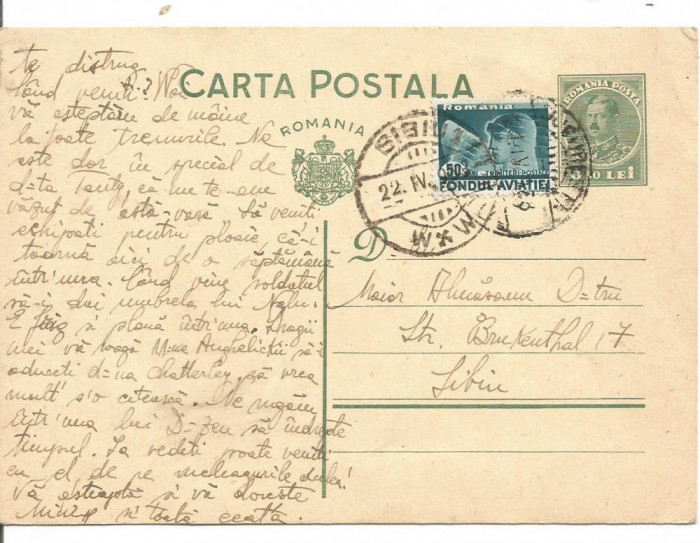 te distrug.
Când veniți? Noi
CARTA POSTALA
vă așteptăm de mâine
la toate trenurile. Ne
este dor în special de
d-ta Tanty, că nu te-am
văzut de astă-vară. Să veniți
echipați pentru ploaie, că-i
toarnă aici de o săptămână
într'una. Când vine soldatul
să-i dai umbrela lui
E frig și plouă într'una. Dragii
mei vă roagă M-me să-i
aduceți d-na Chatterley, că vrea
mult s'o citească. Ne rugăm
într'una lui D-zeu să îndrepte
timpul. Ia vedeți poate veniți
cu el de pe meleagurile alea!
Vă așteaptă și vă dorește
și toată ceata.
ROMANIA
SIBIU
22. IV
Romania
50
TRIMITERI POSTALE
FONDUL AVIATIEI
ROMANIA POSTA
LEI
D
Maior D-tru
Str. Brukenthal 17
Sibiu